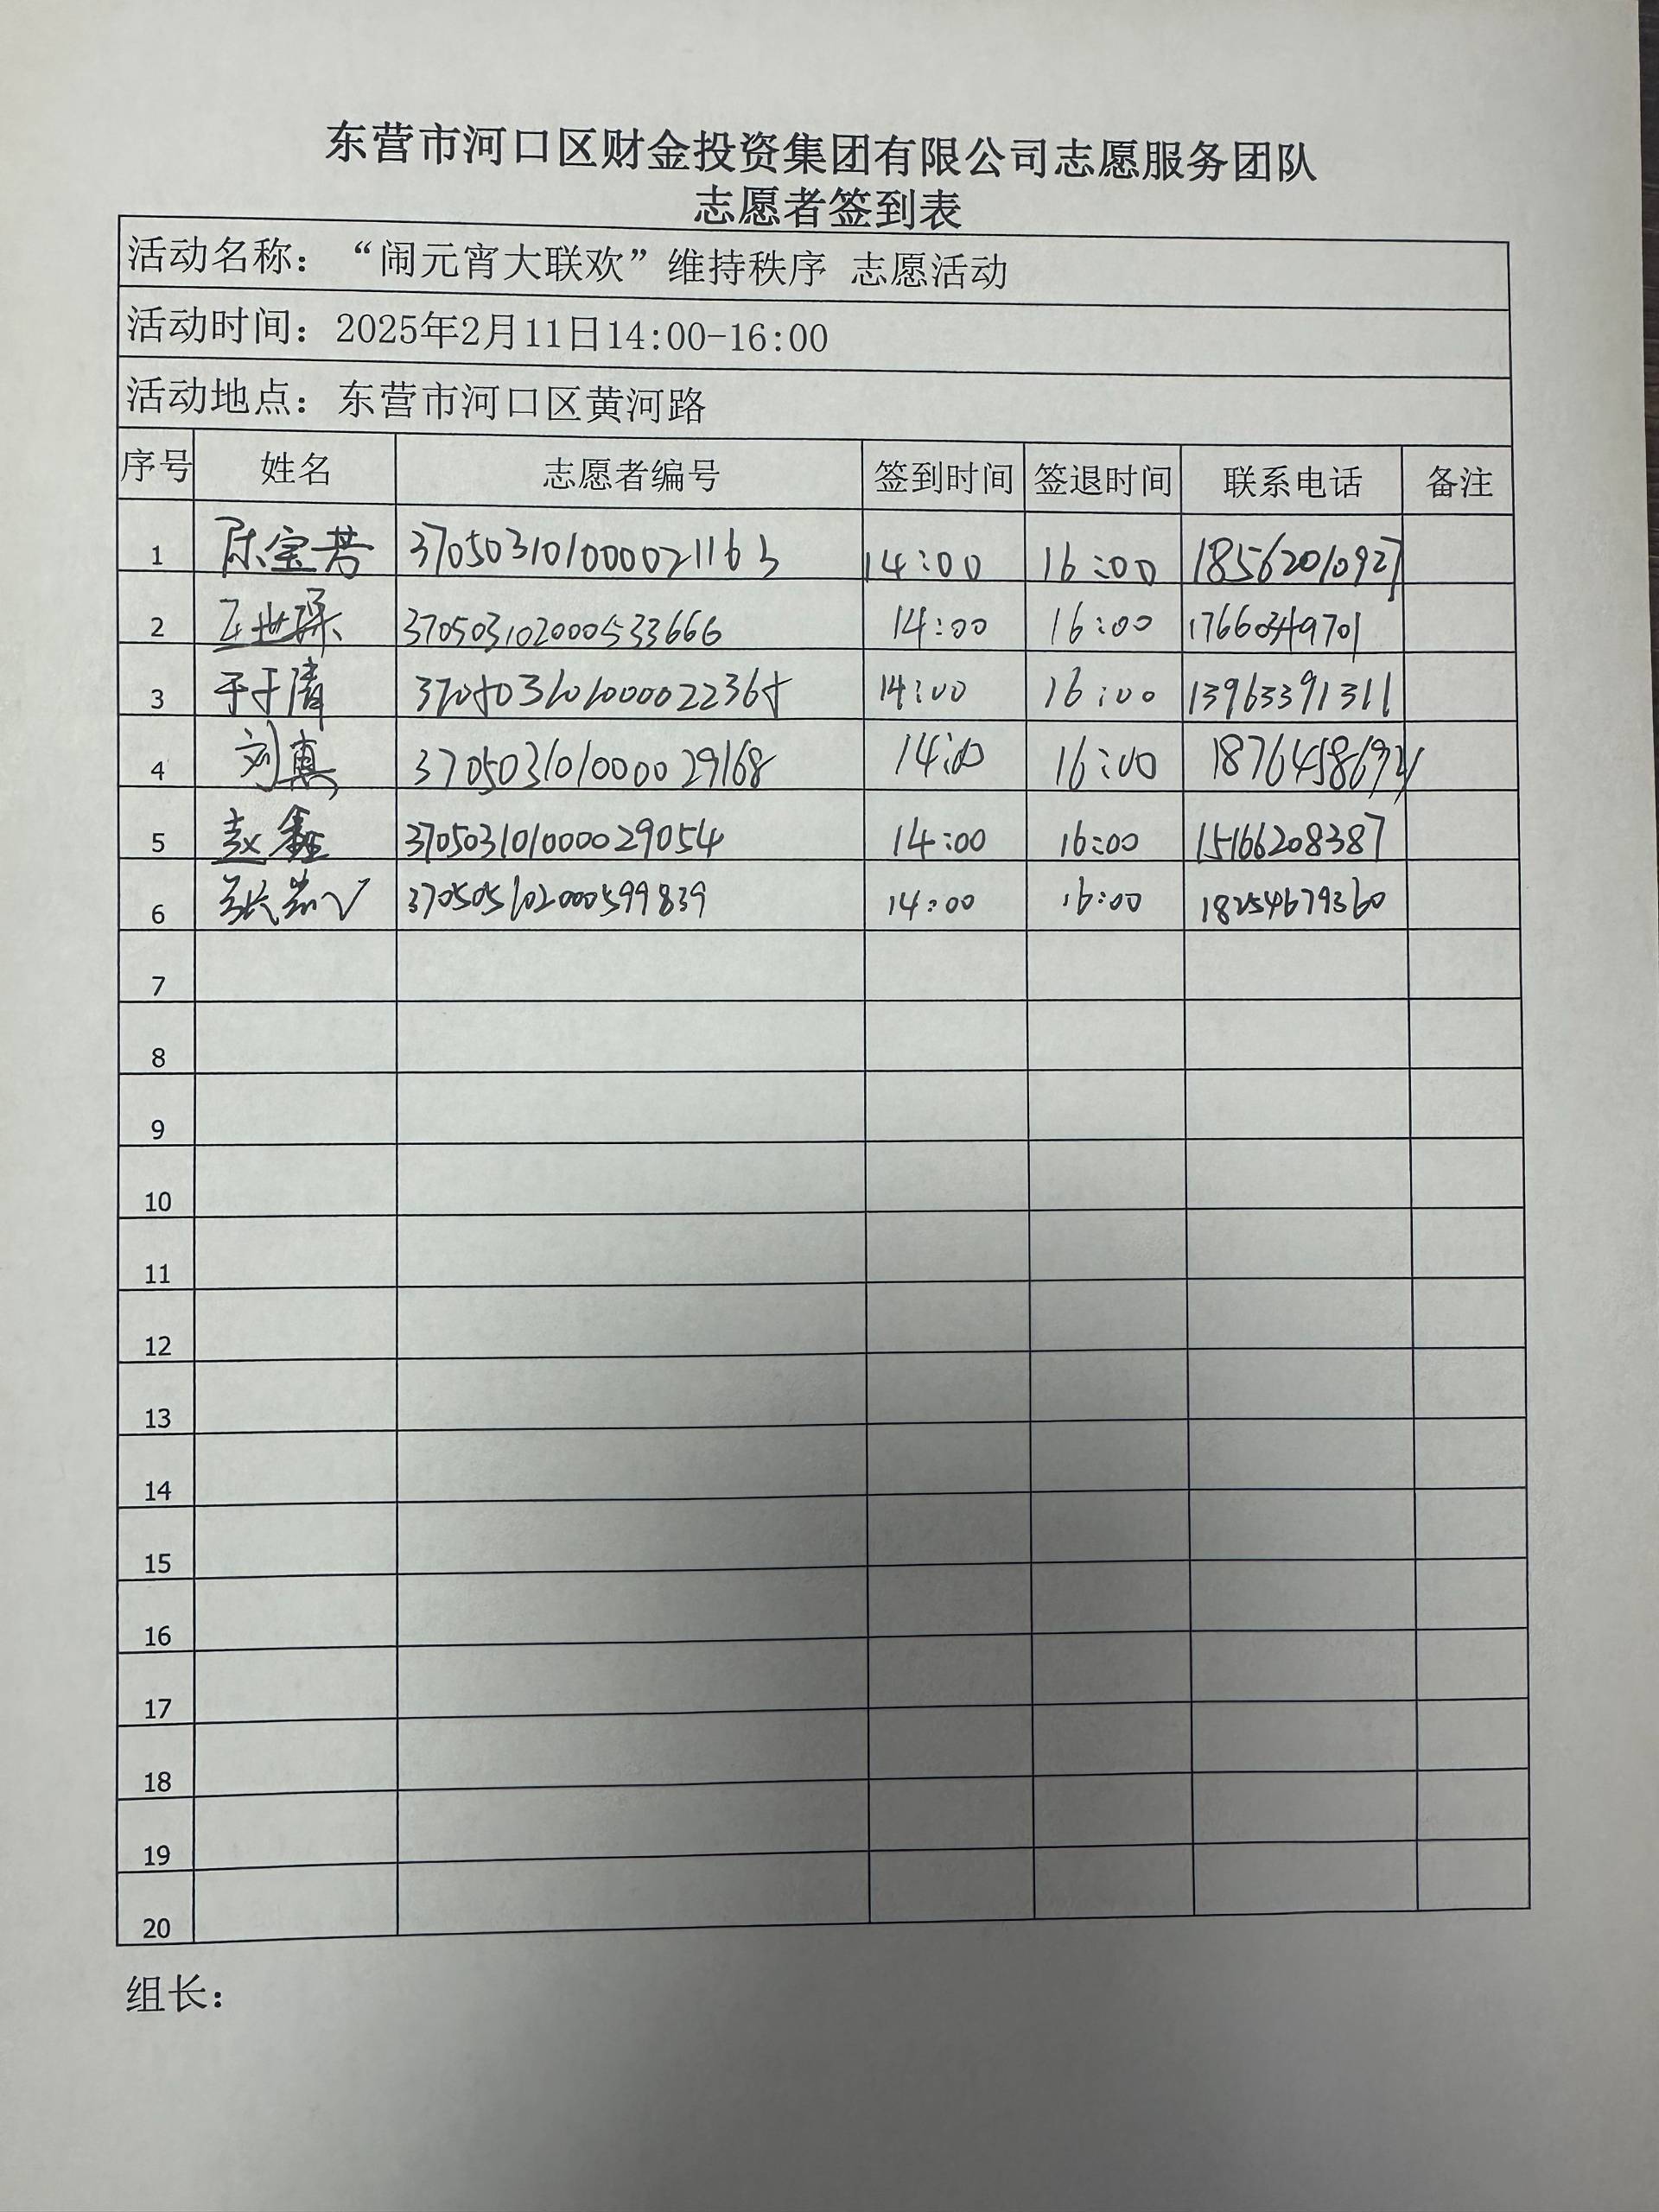 东营市河口区财金投资集团有限公司志愿服务团队
志愿者签到表
活动名称：“闹元宵大联欢”维持秩序 志愿活动
活动时间：2025年2月11日14:00-16:00
活动地点：东营市河口区黄河路
序号 姓名 志愿者编号 签到时间 签退时间 联系电话 备注
1 陈宝芳 370503101000021163 14:00 16:00 18562010927
2 370503102000533666 14:00 16:00 17660349701
3 于于清 370503101000022365 14:00 16:00 13963391311
4 刘真 370503101000029168 14:00 16:00
5 赵鑫 370503101000029054 14:00 16:00 15166208387
6 370505102000599839 14:00 16:00 18254679360
7
8
9
10
11
12
13
14
15
16
17
18
19
20
组长：